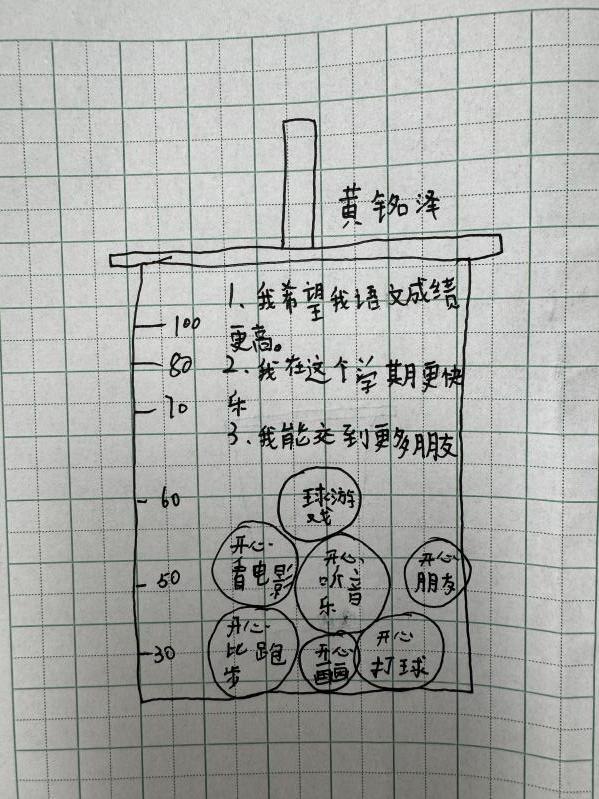 黄铭泽
1、我希望我语文成绩
更高。
2、我在这个学期更快
乐
3、我能交到更多朋友
100
80
70
60
50
30
球游
戏
开心
看电影
开心
听音
乐
开心
朋友
开心
比跑
步
开心
画画
开心
打球